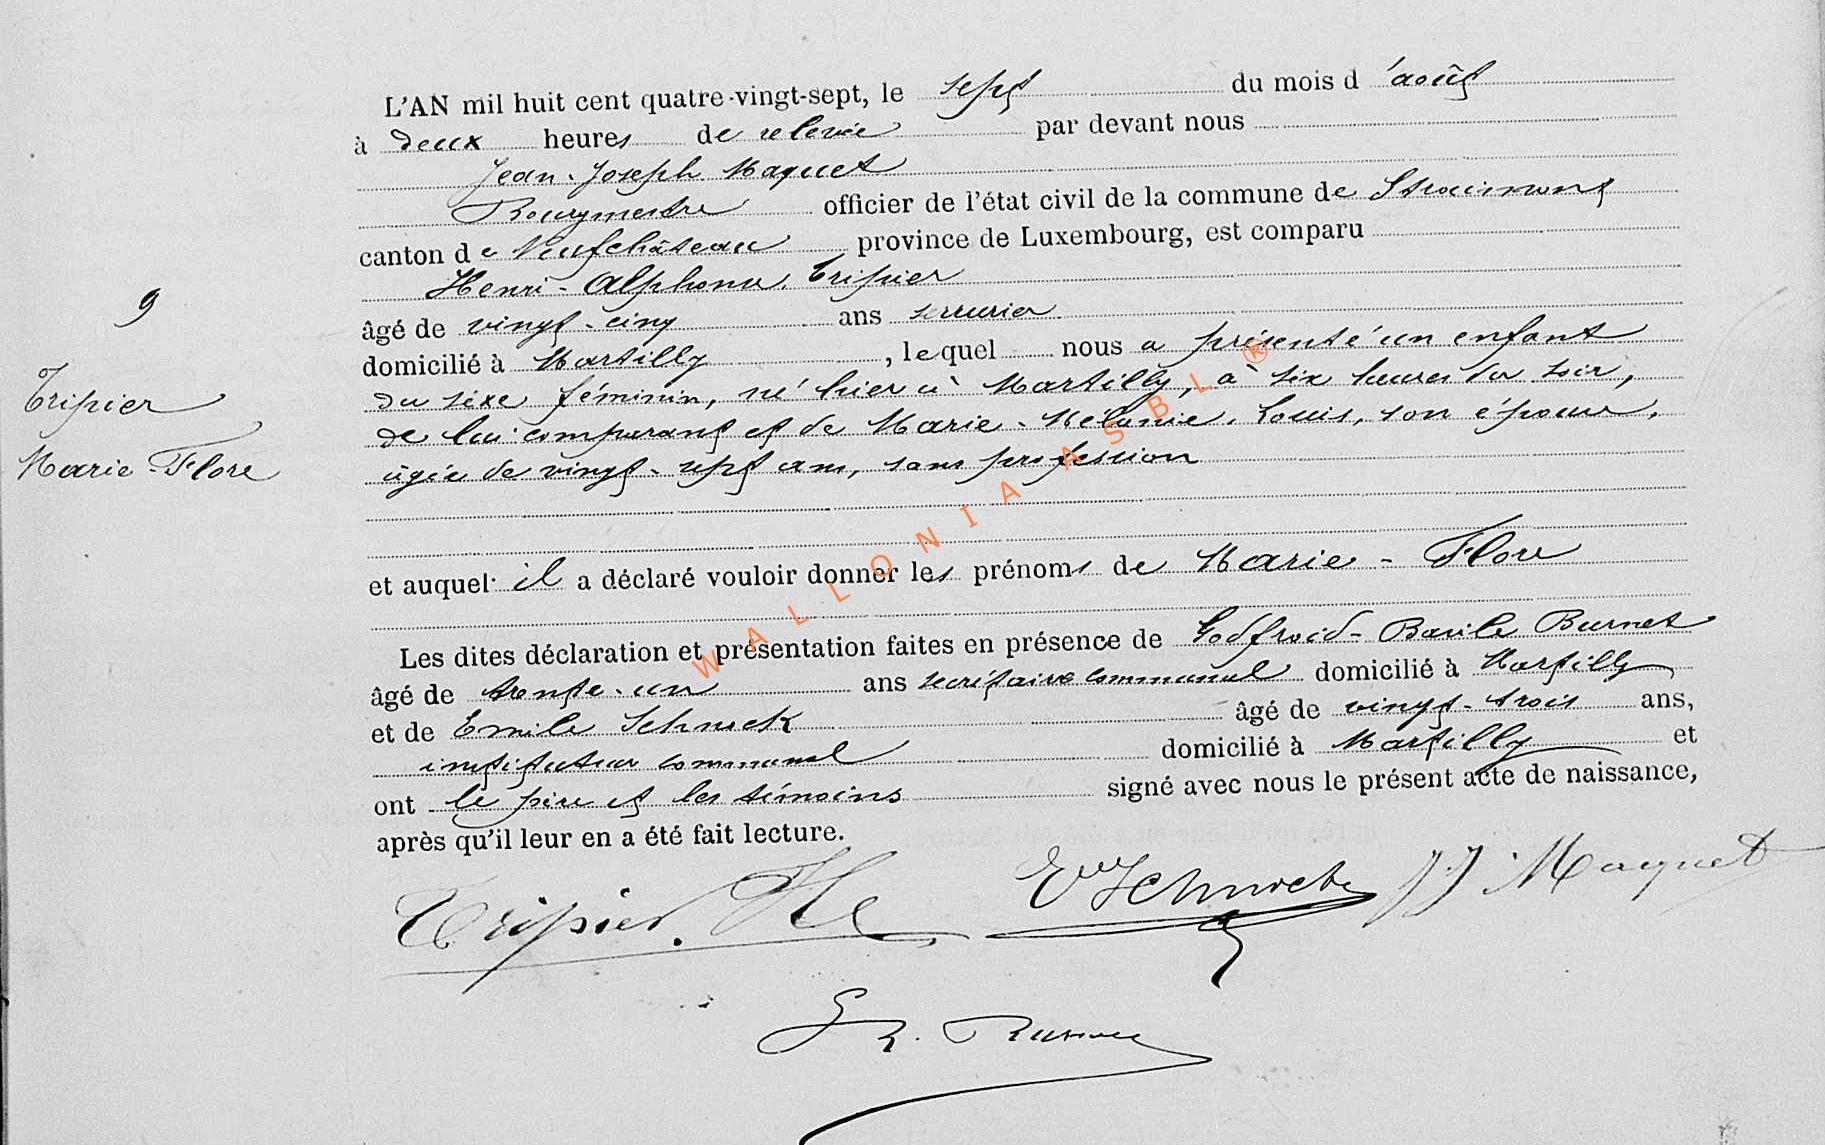 L'AN mil huit cent quatre-vingt-sept, le sept du mois d'août
à deux heures de relevée par devant nous
Jean-Joseph Maquet
Bourgmestre officier de l'état civil de la commune de Straimont
canton de Neufchâteau province de Luxembourg, est comparu
Henri-Alphonse Tripier
âgé de vingt-cinq ans serrurier
domicilié à Martilly, lequel nous a présenté un enfant
du sexe féminin, né hier à Martilly, à six heures du soir,
de lui comparant et de Marie-Mélanie Louis, son épouse,
âgée de vingt-sept ans, sans profession
et auquel il a déclaré vouloir donner les prénoms de Marie-Flore
Les dites déclaration et présentation faites en présence de Godfroid-Basile Burnet
âgé de trente-un ans secrétaire communal domicilié à Martilly
et de Emile Schneck âgé de vingt-trois ans,
instituteur communal domicilié à Martilly et
ont le père et les témoins signé avec nous le présent acte de naissance,
après qu'il leur en a été fait lecture.
9
Tripier
Marie-Flore
Tripier. He
JJ Maquet
WALLONIA ASBL®